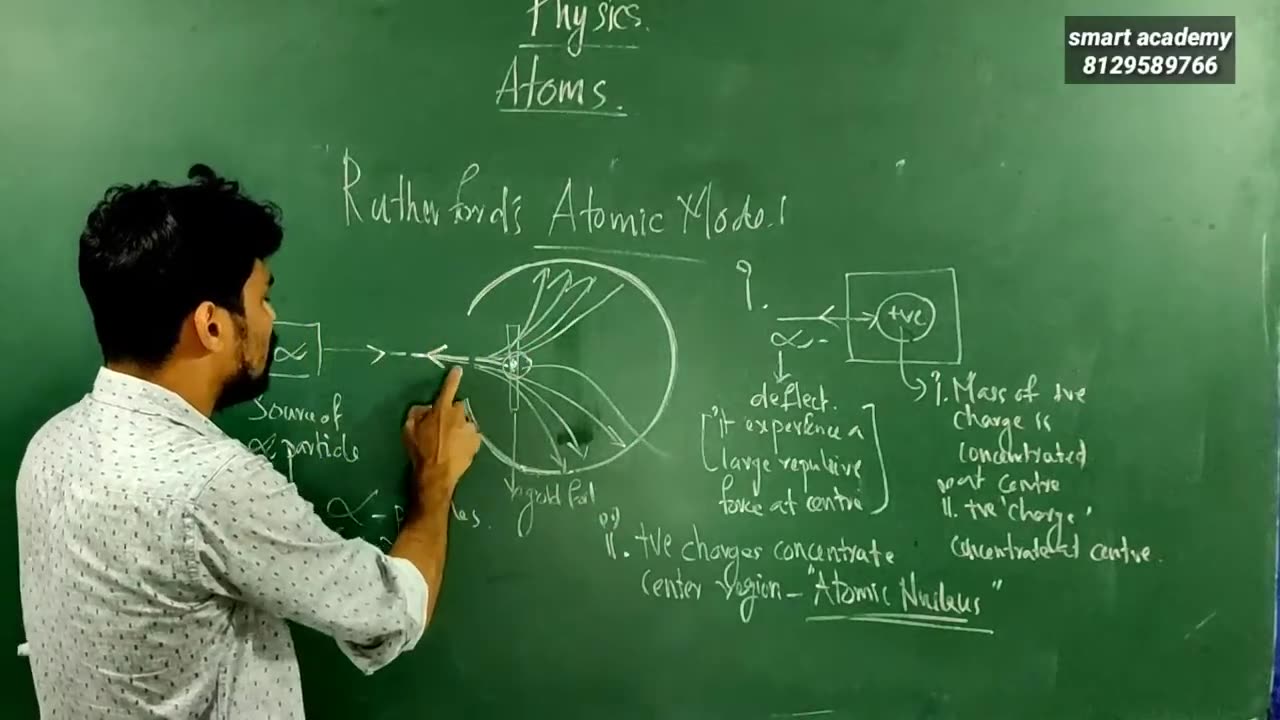 Physics.
smart academy
8129589766
Atoms.
Rutherford's Atomic Model
α
Source of
α particle
α-
gold foil
i.
α-
deflect.
[It experience a
large repulsive
force at centre]
+ve
i. Mass of +ve
charge is
concentrated
at centre
ii. +ve 'charge'
concentrate at centre.
ii. +ve charges concentrate
center region - "Atomic Nucleus"